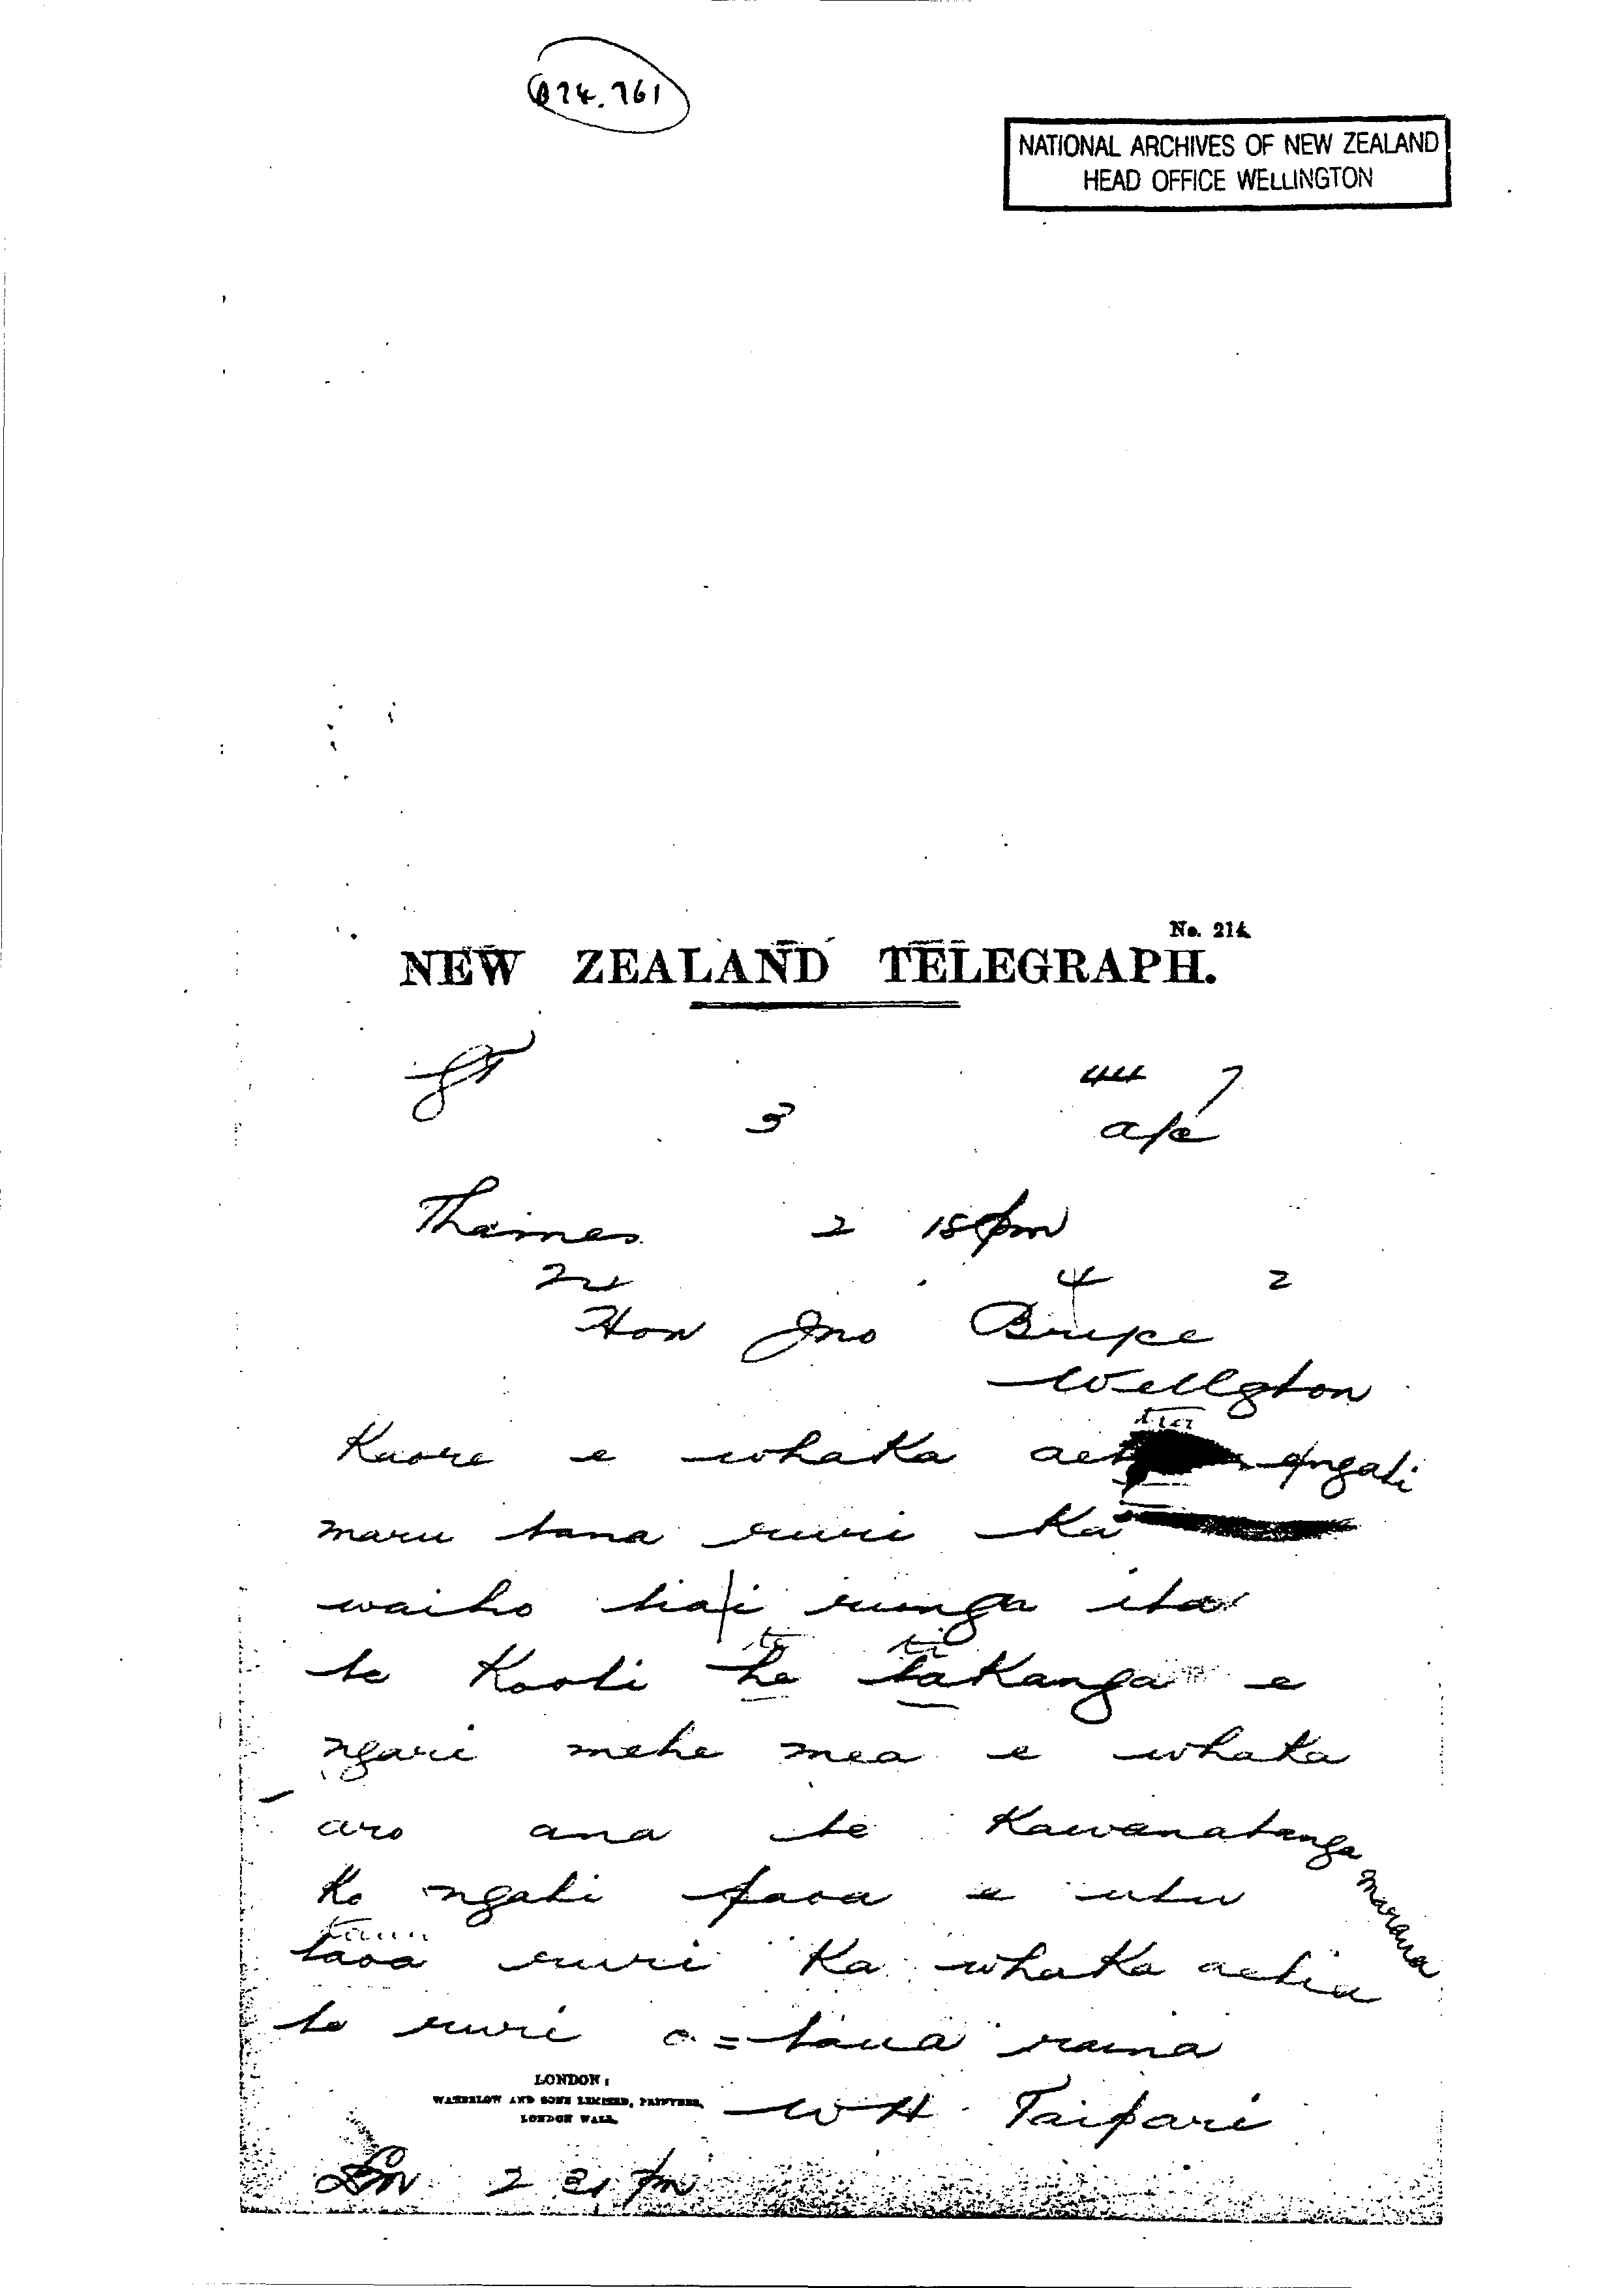 874.761
NATIONAL ARCHIVES OF NEW ZEALAND
HEAD OFFICE WELLINGTON
No. 214
NEW ZEALAND TELEGRAPH.
44 7
3
Thames 2 18 pm
4 2
Hon Jno Bryce
Wellgton
tia
Kaore e whaka aet ngati
maru tana ruri Ka
waiho tiai runga ita
te ti
te Kooti he takanga e
ngari mehe mea e whaka
aro ana te Kawanatanga
Ko ngati paoa e utu marama
taoa ruri Ka whaka aetia
te ruri o = taua raina
LONDON:
WATERLOW AND SONS LIMITED, PRINTERS,
LONDON WALL.
W H Taipari
2 21 pm